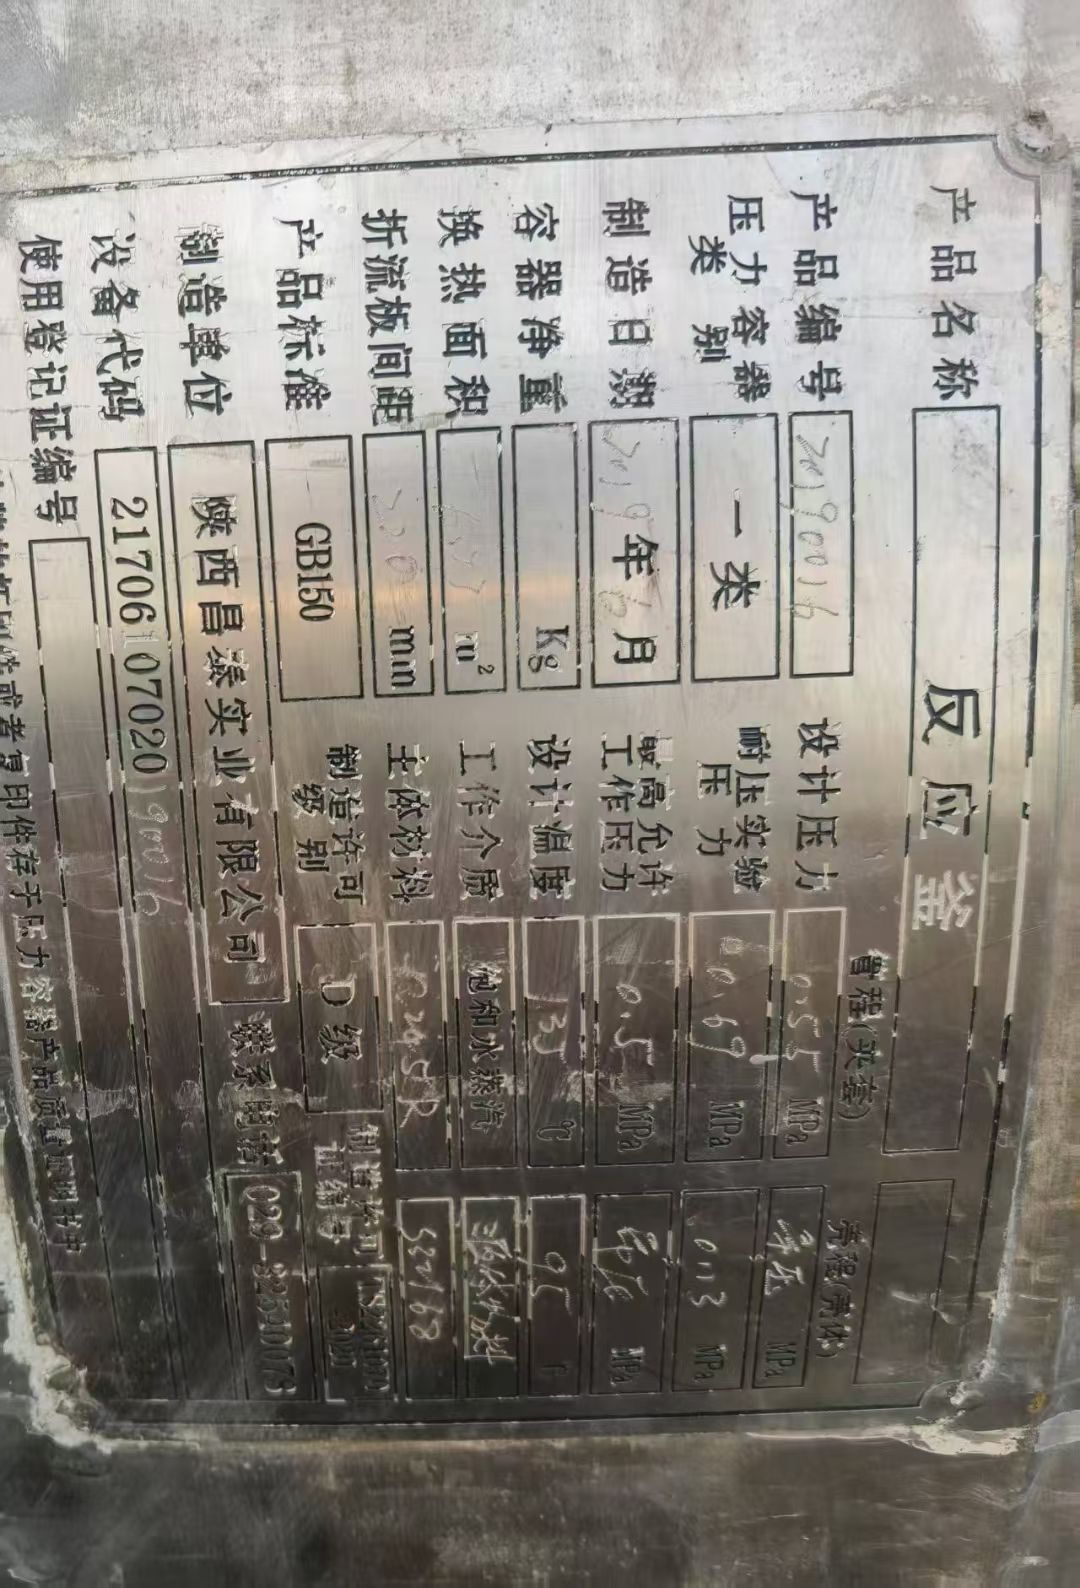 产品名称 反应釜
管程(夹套) 壳程(壳体)
产品编号 20190016 设计压力 0.55 MPa 常压 MPa
压力容器类别 一类 耐压实验压力 0.69 MPa 0.113 MPa
制造日期 2019年6月 最高允许工作压力 0.5 MPa 常压 MPa
容器净重 Kg 设计温度 133 ℃ 95
换热面积 m² 工作介质 饱和水蒸汽
折流板间距 mm 主体材料 Q245R S22168
产品标准 GB150 制造许可级别 D级 制造许可证编号
制造单位 陕西昌泰实业有限公司 联系电话
设备代码 21706107020190016
使用登记证编号
或者复印件存于压力容器产品质量证明书中